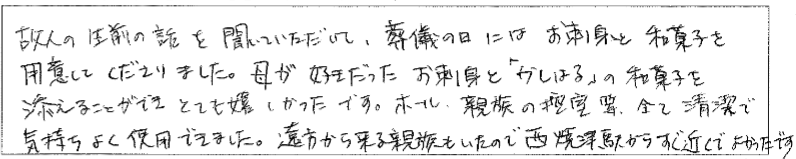 故人の生前の話を聞いていただいて、葬儀の日にはお刺身と和菓子を
用意してくださりました。母が好きだったお刺身と「かしはる」の和菓子を
添えることができとても嬉しかったです。ホール、親族の控室等、全て清潔で
気持ちよく使用できました。遠方から来る親族もいたので西焼津駅からすぐ近くでよかったです